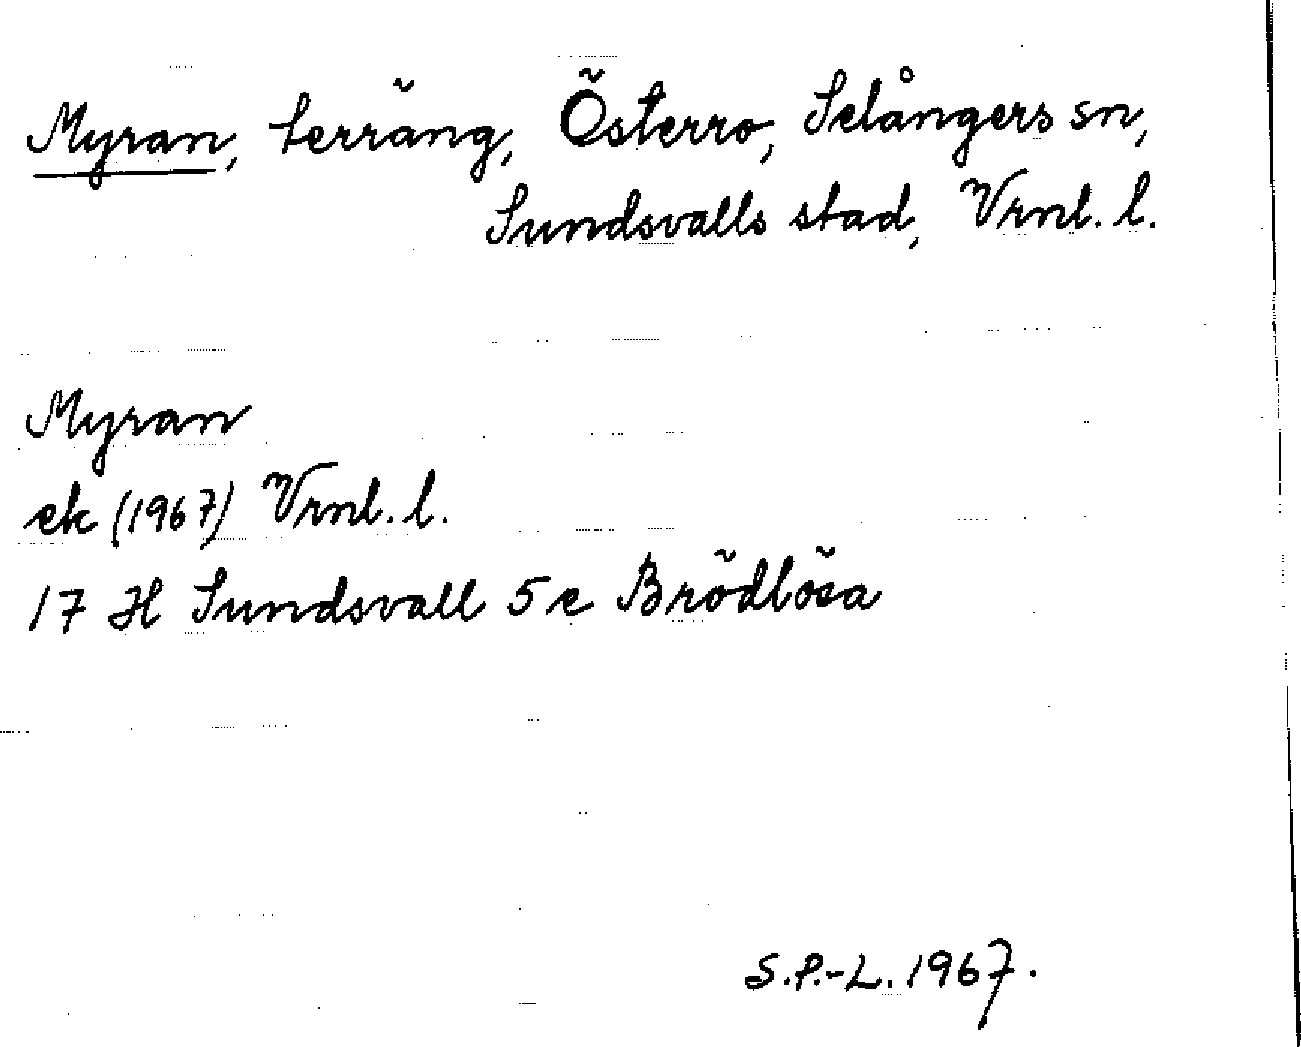 Myran, terräng, Österro, Selångers sn,
Sundsvalls stad, Vrnl. l.
Myran
ek (1967) Vrnl. l.
17 H Sundsvall 5 c Brödlösa
S.P.-L. 1967.